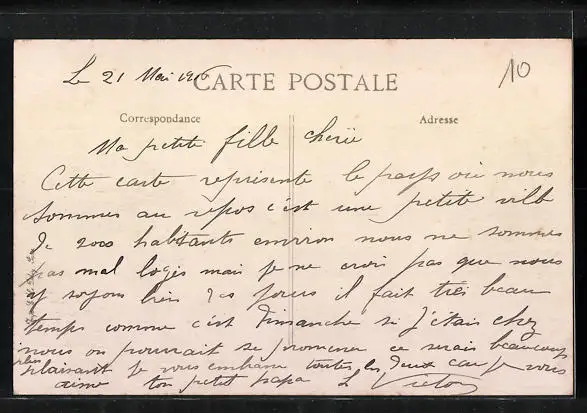 Le 21 Mai 1916
CARTE POSTALE
10
Correspondance
Adresse
Ma petite fille cherie
Cette carte represente le pays où nous
sommes au repos c'est une petite ville
De 2000 habitants environ nous ne sommes
pas mal logés mais je ne crois pas que nous
y soyons bien des jours il fait très beau
temps comme c'est Dimanche si j'étais chez
nous on pourrait se promener ce serait beaucoup
plus plaisant je vous embrasse toutes les Deux car je vous
aime ton petit papa